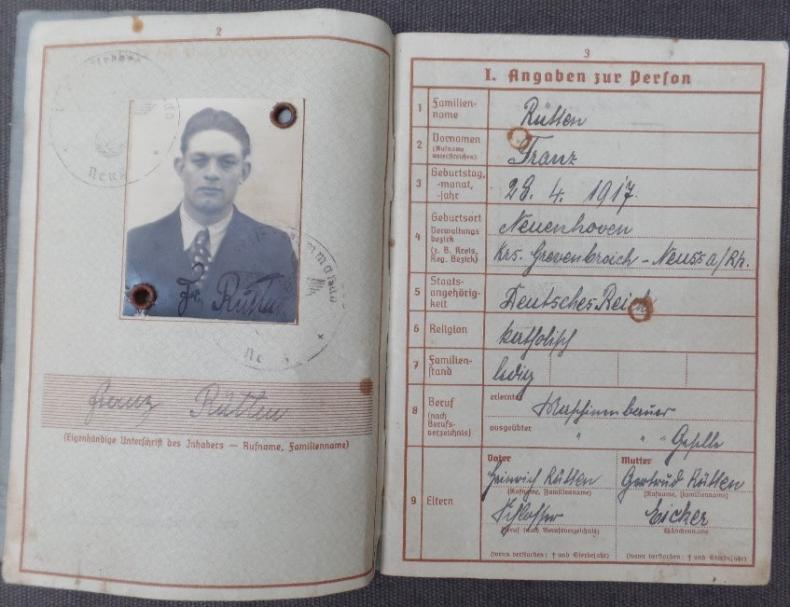 2
Fr. Rütten
Franz Rütten
(Eigenhändige Unterschrift des Inhabers — Rufname, Familienname)
3
I. Angaben zur Person
1 Familien-
name
Rütten
2 Vornamen
(Rufname
unterstreichen)
Franz
3 Geburtstag,
-monat,
-jahr
28. 4. 1917.
4 Geburtsort
Verwaltungs-
bezirk
(z. B. Kreis,
Reg. Bezirk)
Neuenhoven
Krs. Grevenbroich - Neuss a/Rh.
5 Staats-
angehörig-
keit
Deutsches Reich
6 Religion
katholisch
7 Familien-
stand
ledig
8 Beruf
(nach
Berufs-
verzeichnis)
erlernter
Maschinenbauer
ausgeübter
" " " Geselle
9 Eltern
Vater Mutter
Heinrich Rütten Gertrud Rütten
(Rufname, Familienname) (Rufname, Familienname)
Schlosser Eicker
Beruf (nach Berufsverzeichnis) Mädchenname
(wenn verstorben: † und Sterbejahr) (wenn verstorben: † und Sterbejahr)